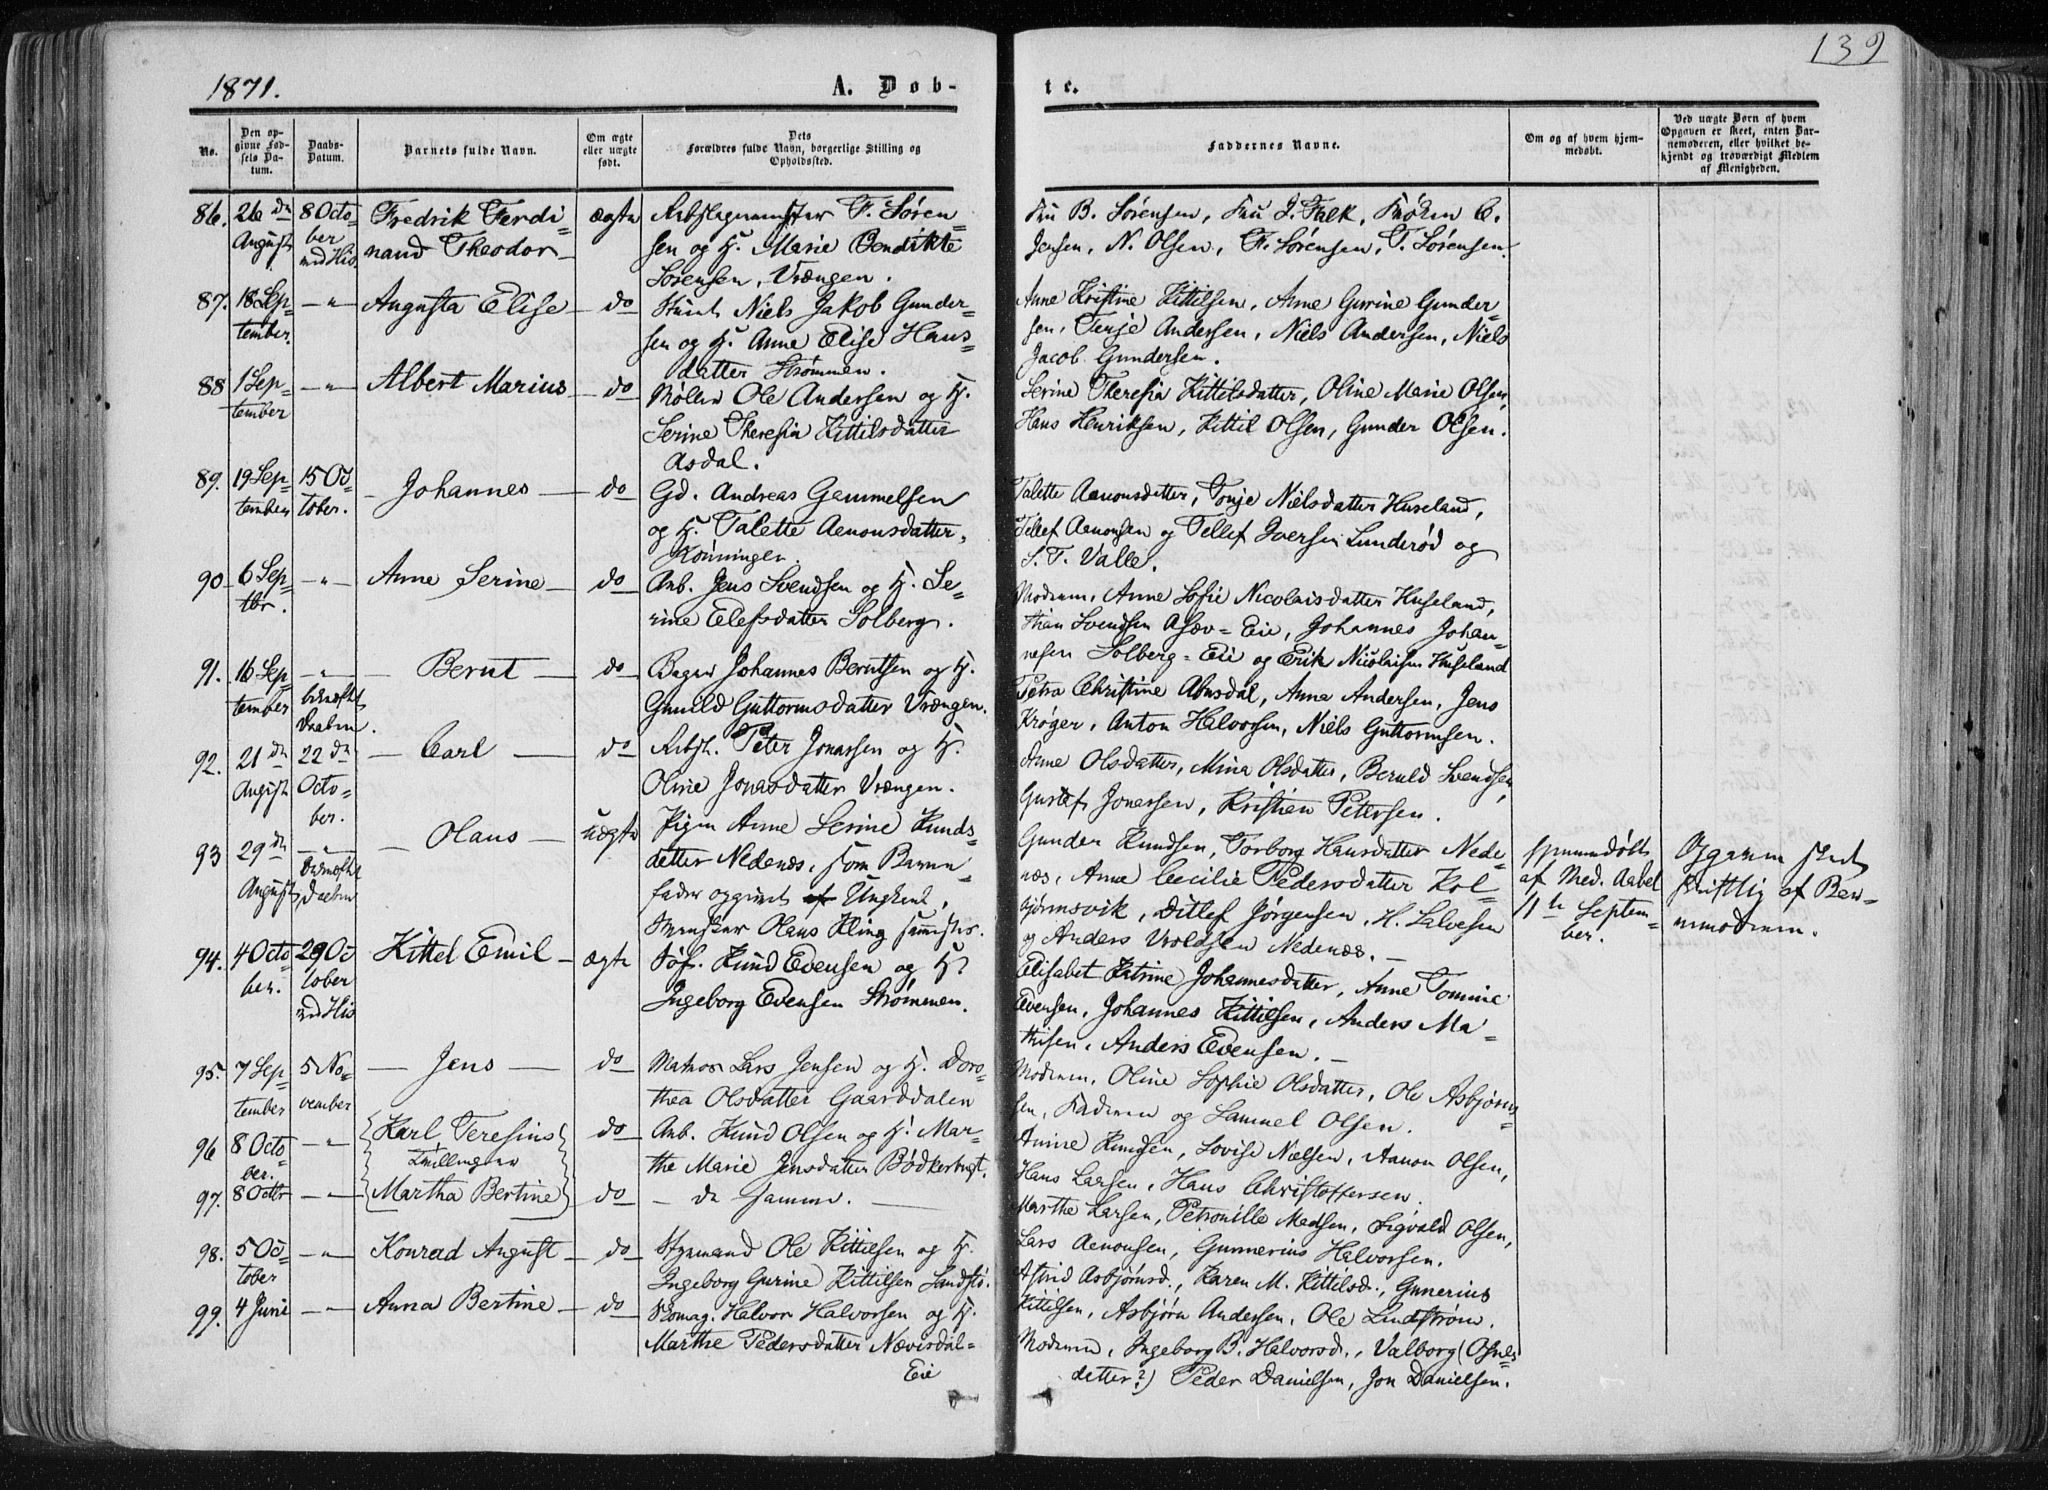 139
1871.
A. Døb-
te.
No.
Den op-
givne Fød-
sels Da-
tum.
Daabs-
Datum.
Barnets fulde Navn.
Om ægte
eller uægte
født.
Dets
Forældres fulde Navn, borgerlige Stilling og
Opholdssted.
Faddernes Navne.
Om og af hvem hjem-
medøbt.
Ved uægte Børn af hvem
Opgaven er skeet, enten Bar-
nemoderen, eller hvilket be-
kjendt og troværdigt Medlem
af Menigheden.
86. 26 de August
8 Octo-
ber
ved His
Fredrik Ferdi-
nand Theodor
ægte
F. Søren-
sen og H. Marie Bendikte
Sørensen, Vrængen.
Fru B. Sørensen, Fru J. Falk, Frøken C.
Jensen, N. Olsen, F. Sørensen, T. Sørensen.
87. 18 Sep-
tember.
— " Augusta Elise — do
Niels Jakob Gunder-
sen og H. Anne Elise Hans-
datter Strømmen.
Anne Kristine Kittilsen, Anne Gurine Gunder-
sen, Terje Andersen, Niels Andersen, Niels
Jacob Gundersen.
88 1 Sep-
tember
— " Albert Marius — do
Møller Ole Andersen og H.
Serine Theresia Kittilsdatter
Asdal.
Serine Theresia Kittilsdatter, Oline Marie Olsen,
Hans Henriksen, Kittil Olsen, Gunder Olsen.
89. 19 Sep-
tember
15 Oc-
tober.
— Johannes — do
Gd. Andreas Gammelsen
og H. Talette Aanonsdatter,
Rønningen.
Talette Aanonsdatter, Tonje Nielsdatter Huseland,
Tellef Aanonsen og Tellef Iversen Lunderød og
S. T. Valle.
90 6 Sep-
tbr.
— " — Anne Serine — do
Arb. Jens Svendsen og H. Se-
rine Elefsdatter Solberg.
Moderen, Anne Sofie Nicolaisdatter Huseland,
Stian Svendsen Asdal-Eie, Johannes Johan-
nesen Solberg-Eie og Erik Nicolaisen Huseland
91. 16 Sep-
tember
— "
bekræftet
Daaben.
— Bernt — do
Bager Johannes Berntsen og H.
Gunild Guttormsdatter Vrængen.
Petra Christine Aamdal, Anna Andersen, Jens
Krøger, Anton Halvorsen, Niels Guttormsen.
92. 21 de
August
22 de
Octo-
ber.
— Carl — do
Arbst. Peter Jonassen og H.
Oline Jonasdatter Vrængen.
Anne Olsdatter, Mina Olsdatter, Beruld Svendsen,
Gustaf Jonassen, Kristian Petersen.
93 29 de
August
— "
bekræftet
Daaben
— Olaus — uægte
Pigen Anne Serine Knuds-
datter Nedenæs, som Barne-
fader opgivet af Ungkarl,
Svensker Olaus Kling
Gunder Knudsen, Torborg Hansdatter Nede-
næs, Anne Cecilie Pedersdatter Kol-
bjørnsvik, Ditlef Jørgensen, H. Salvesen
og Anders Vroldsen Nedenæs. —
Hjemmedøbt
af Mad. Aabel
11te Septem-
ber.
Opgaven skeet
skriftlig af Bar-
nemoderen.
94. 4 Octo-
ber.
29 Oc
tober
ved His
Kittel Emil — ægte
Søf. Knud Evensen og H.
Ingeborg Evensen Strømmen.
Elisabet Katrine Johannesdatter, Anne Tomine
Evensen, Johannes Kittilsen, Anders Ma-
thisen, Anders Evensen. —
95. 7 Sep-
tember
5 No-
vember
— Jens — do
Matros Lars Jensen og H. Doro-
thea Olsdatter Gaarddalen
Moderen, Oline Sophie Olsdatter, Ole Asbjørn-
sen, Faderen og Samuel Olsen.
96 8 Octo-
ber.
— "
Karl Teresius
Tvillinger
do
Arb. Knud Olsen og H. Mar-
the Marie Jensdatter Bødkerbugt.
Amine Knudsen, Lovise Nielsen, Aanon Olsen,
Hans Larsen, Hans Christoffersen.
97. 8 Octbr — " — Martha Bertine do — de samme. —
Marthe Larsen, Petronille Madsen, Sigvald Olsen,
Lars Aanonsen, Gunnerius Halvorsen.
98. 5 Oc-
tober
— " — Konrad August — do
Styrmand Ole Kittilsen og H.
Ingeborg Gurine Kittilsen Sandstø.
Astrid Asbjørnsd., Karen M. Kittilsd., Gunerius
Kittilsen, Asbjørn Andersen, Ole Lindstrøm.
99. 4 Juni — " — Anna Bertine — do
Skomag. Halvor Halvorsen og H.
Marthe Pedersdatter Nævisdal-
Eie
Moderen, Ingeborg B. Halvorsd., Valborg (Osuls-
datter?) Peder Danielsen, Jon Danielsen.